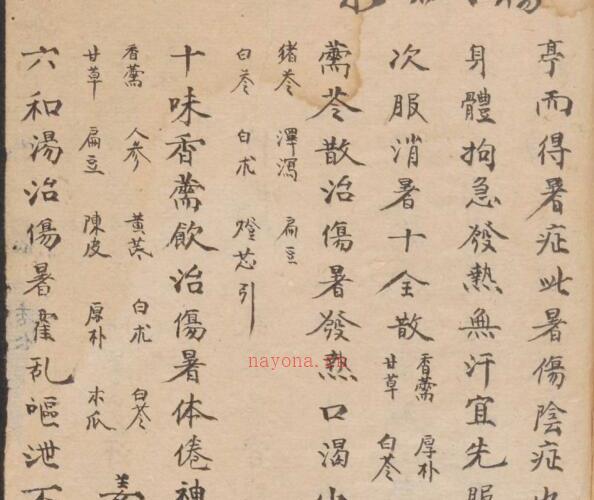 亭而得暑症此暑傷陰症
身體拘急發熱無汗宜先服
次服消暑十全散
香薷 厚朴
甘草 白苓
薷苓散治傷暑發热口渴小
猪苓 澤瀉 扁豆
白苓 白朮 燈芯引
十味香薷飲治傷暑体倦神
香薷 人參 黄芪 白朮 白苓
甘草 扁豆 陳皮 厚朴 木瓜
六和湯治傷暑霍乱嘔泄不
nayona.cn